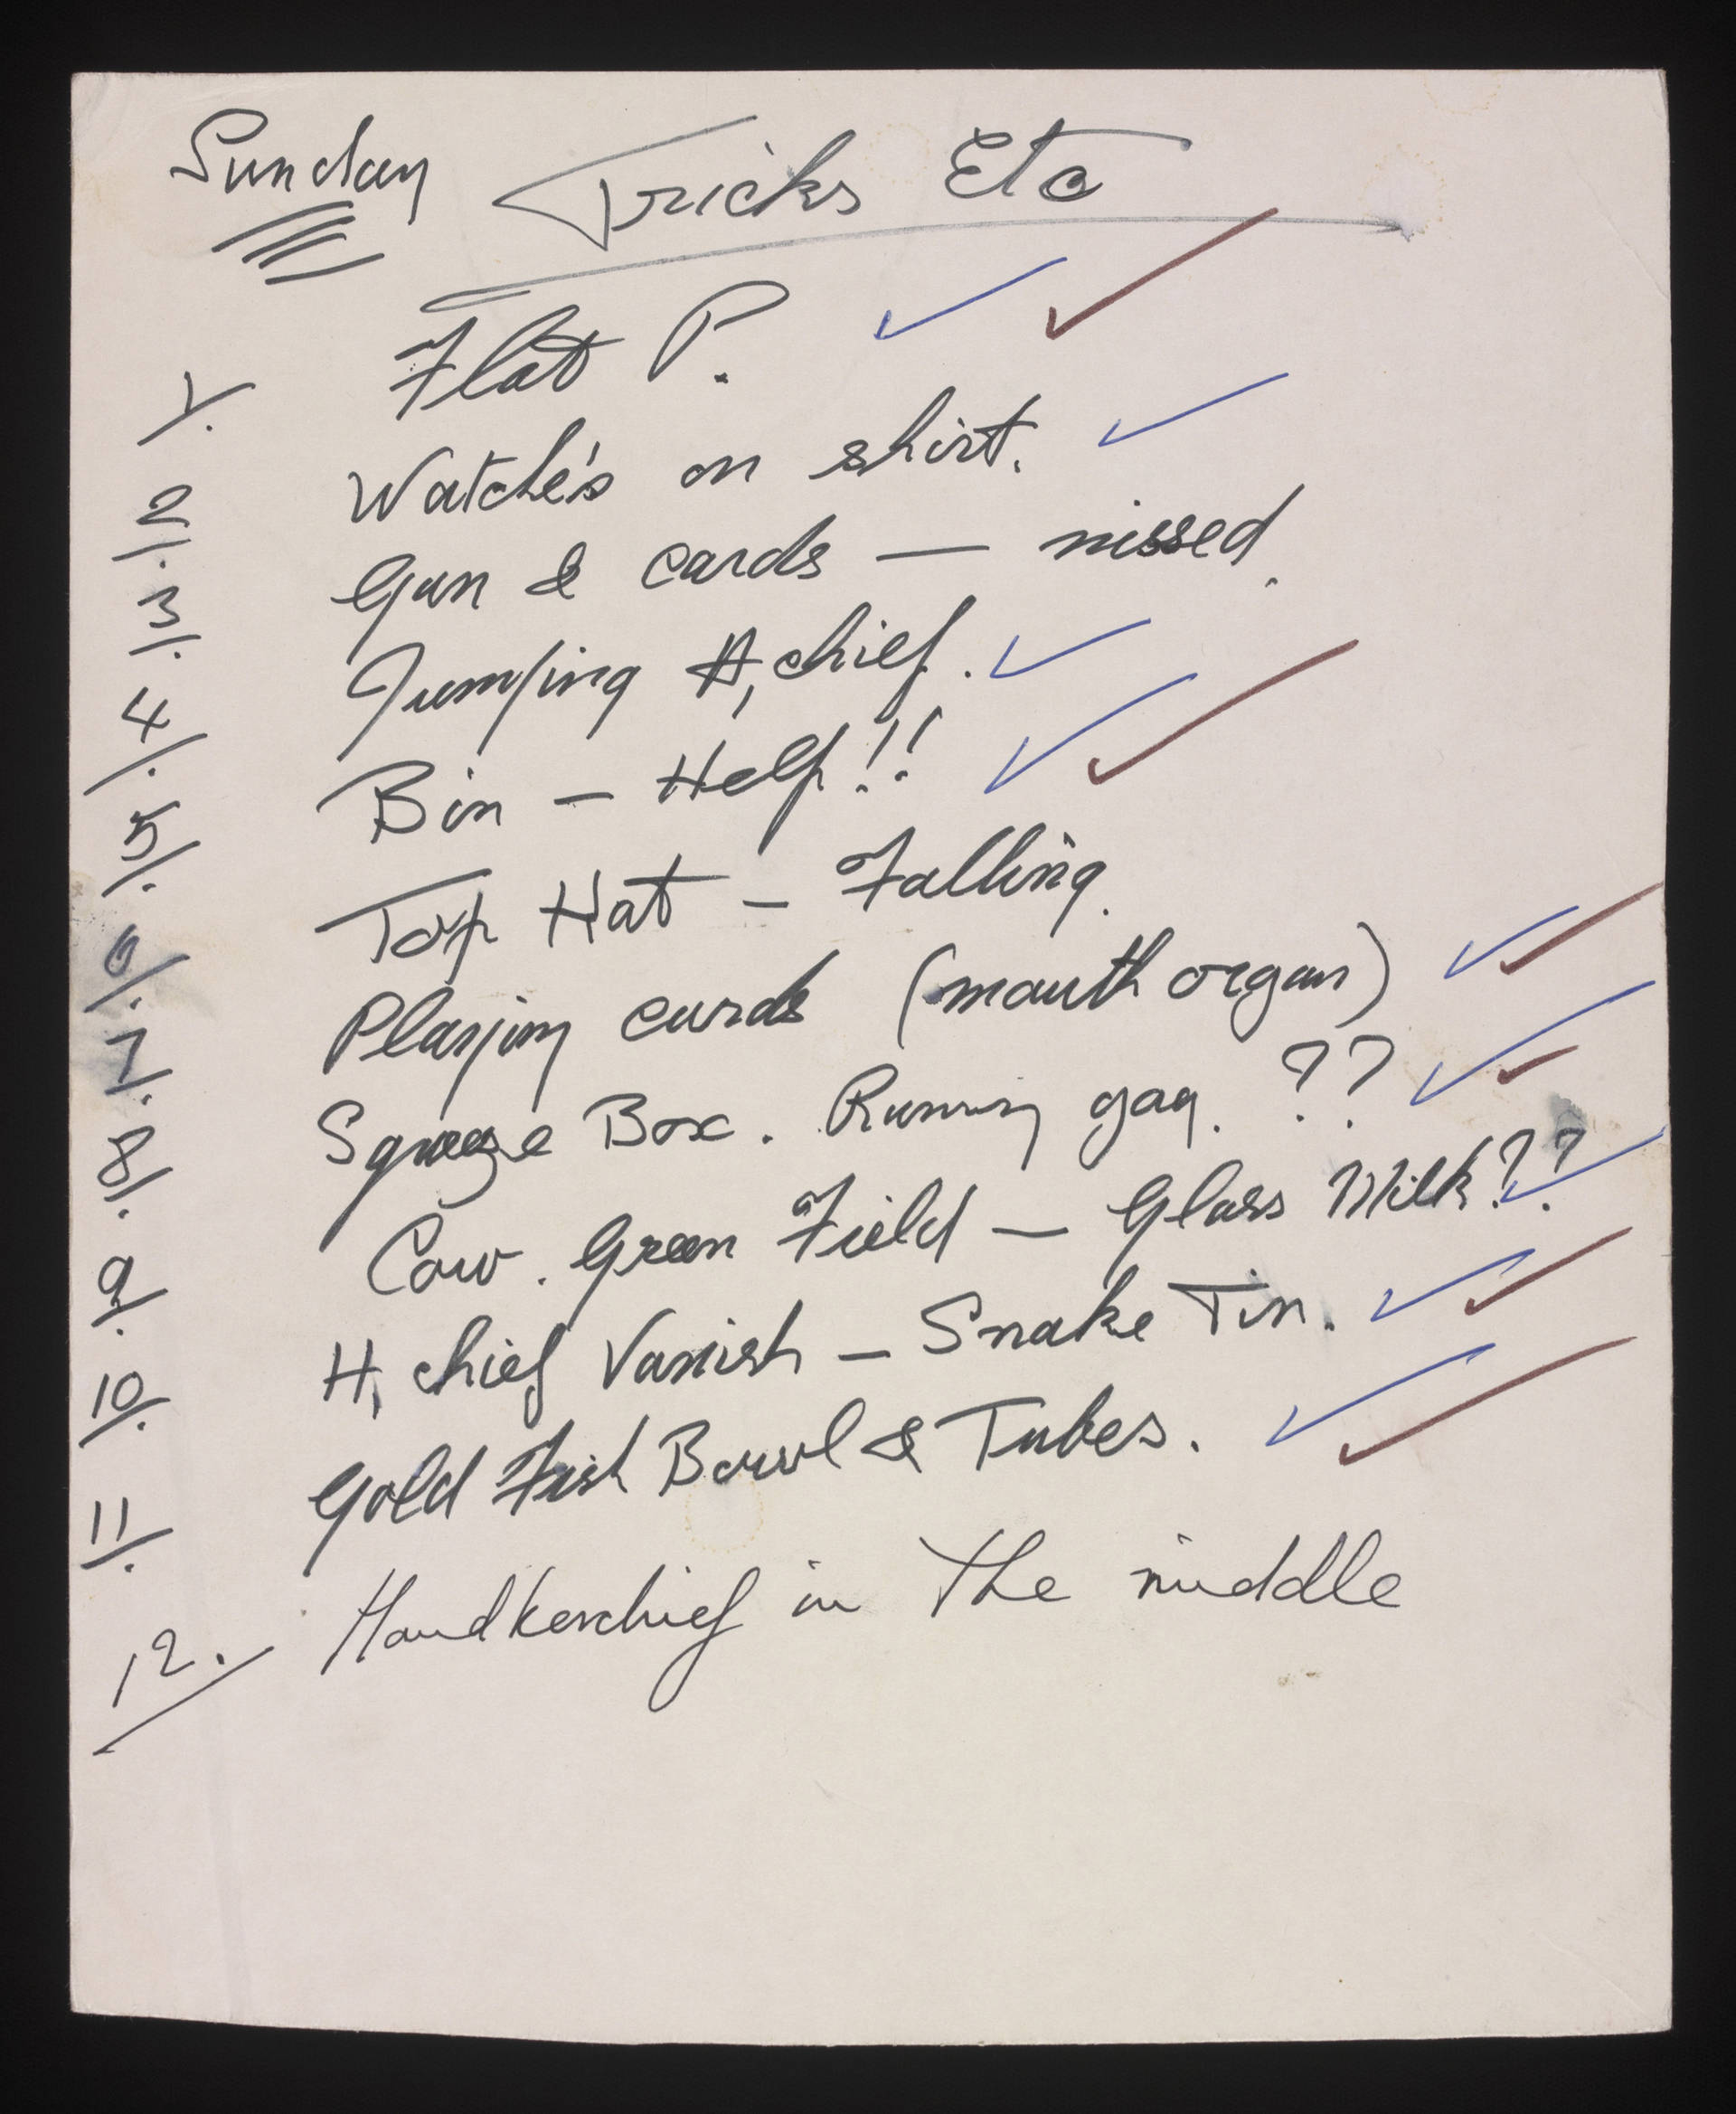 Sunday Tricks Etc
1/. Flat P. ✓ ✓
2/. Watche's on shirt. ✓
3/. Gun & cards — missed.
4/. Jumping H,chief. ✓
5/. Bin – Help!! ✓ ✓
6/. Top Hat – Falling.
7/. Playing cards (mouth organ) ✓ ✓
8/. Sqweeze Box. Running gag. ?? ✓ ✓
9/. Cow. Green Field — Glass Milk?? ✓
10/. H, chief Vanish – Snake Tin. ✓ ✓
11/. Gold Fish Bowl & Tubes. ✓ ✓
12. Handkerchief in the middle